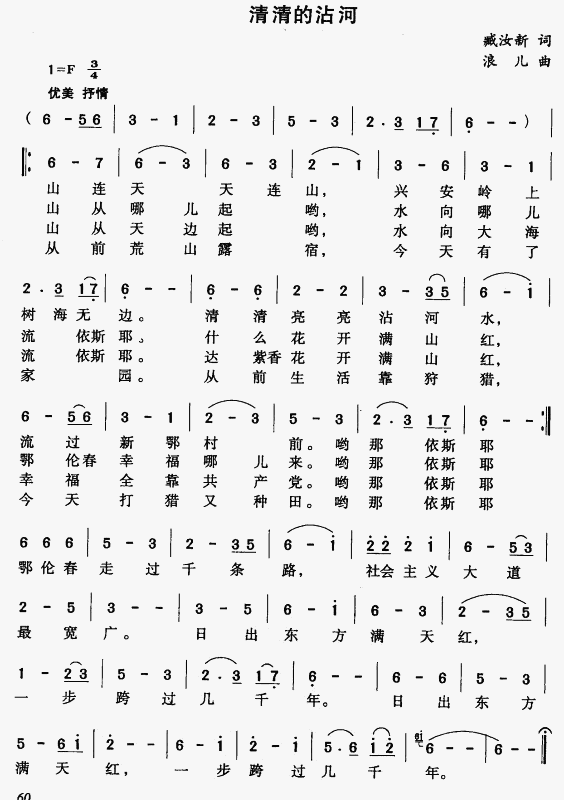 清清的沾河
臧汝新 词
浪 儿 曲
1=F 3/4
优美 抒情
( 6 - 56 | 3 - 1 | 2 - 3 | 5 - 3 | 2 · 3 17 | 6 - - )
6 - 7 | 6 - 3 | 6 - 3 | 2 - 1 | 3 - 6 | 3 - 1 |
山 连 天 天 连 山, 兴 安 岭 上
山 从 哪 儿 起 哟, 水 向 哪 儿
山 从 天 边 起 哟, 水 向 大 海
从 前 荒 山 露 宿, 今 天 有 了
2 · 3 17 | 6 - - | 6 - 6 | 2 - 2 | 3 - 35 | 6 - i |
树 海 无 边。 清 清 亮 亮 沾 河 水,
流 依斯 耶、 什 么 花 开 满 山 红,
流 依斯 耶。 达 紫香 花 开 满 山 红,
家 园。 从 前 生 活 靠 狩 猎,
6 - 56 | 3 - 1 | 2 - 3 | 5 - 3 | 2 · 3 17 | 6 - - :|
流 过 新 鄂 村 前。 哟 那 依斯 耶
鄂 伦春 幸 福 哪 儿 来。 哟 那 依斯 耶
幸 福 全 靠 共 产 党。 哟 那 依斯 耶
今 天 打 猎 又 种 田。 哟 那 依斯 耶
6 6 6 | 5 - 3 | 2 - 35 | 6 - i | 22 2 i | 6 - 53 |
鄂 伦 春 走 过 千 条 路, 社会 主 义 大 道
2 - 2 | 3 - - | 3 - 5 | 6 - i | 6 - 3 | 2 - 35 |
最 宽 广。 日 出 东 方 满 天 红,
1 - 23 | 5 - 3 | 2 · 3 17 | 6 - - | 6 - 6 | 5 - 3 |
一 步 跨 过 几 千 年。 日 出 东 方
5 - 6i | 2 - - | 6 - i | 2 - i | 5 · 6 i2 | 6 - - | 6 - - |
满 天 红, 一 步 跨 过 几 千 年。
60